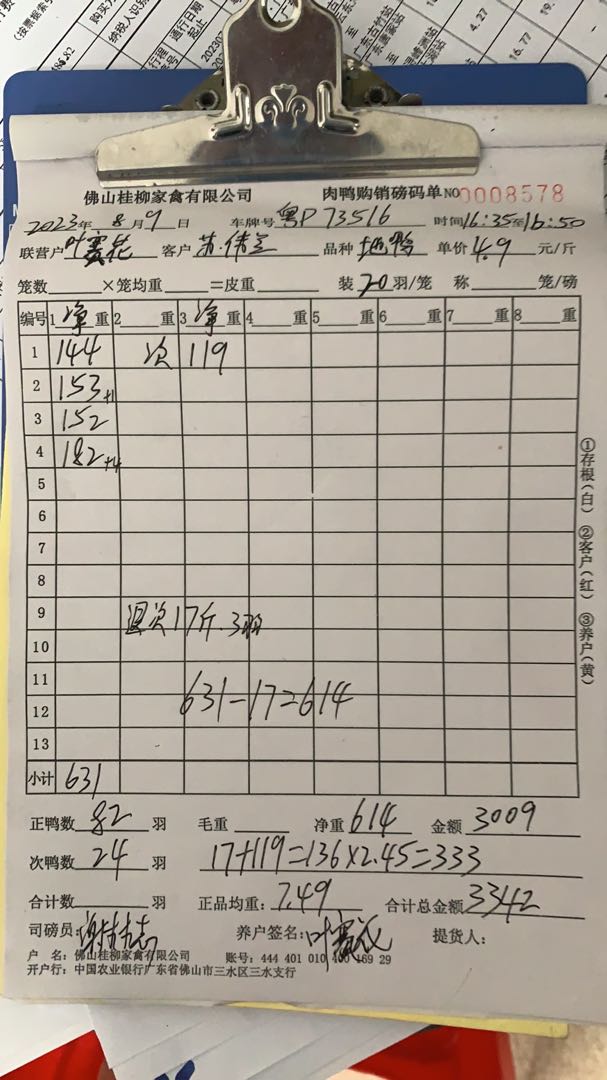 佛山桂柳家禽有限公司 肉鸭购销磅码单 NO 0008578
2023年 8月 9日 车牌号 粤P 73516 时间16:35至16:50
联营户 叶赛花 客户 苏伟兰 品种 地鸭 单价 4.9 元/斤
笼数 ×笼均重 =皮重 装 20 羽/笼 称 笼/磅
编号 1 净 重 2 重 3 净 重 4 重 5 重 6 重 7 重 8 重
1 144 次 119
2 153+1
3 152
4 182+4
5
6
7
8
9 退次17斤.3羽
10
11
631-17=614
12
13
小计 631
正鸭数 82 羽 毛重 净重 614 金额 3009
次鸭数 24 羽 17+119=136×2.45=333
合计数 羽 正品均重: 7.49 合计总金额 3342
司磅员: 养户签名: 叶赛花 提货人:
户 名: 佛山桂柳家禽有限公司 账号: 444 401 010 400 169 29
开户行: 中国农业银行广东省佛山市三水区三水支行
①存根(白) ②客户(红) ③养户(黄)
纳税人识
通行日期
起止
4.27
16.77